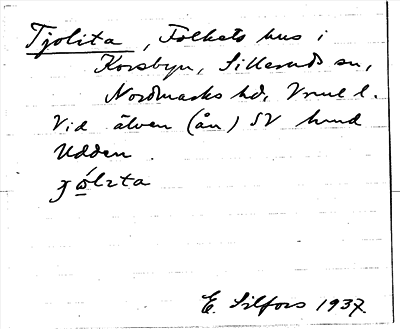 Tjolita, Folkets hus i
Korsbyn, Silleruds sn,
Nordmarks hd, Vrml l.
Vid älven (ån) SV
Udden
E. Silfors 1937.